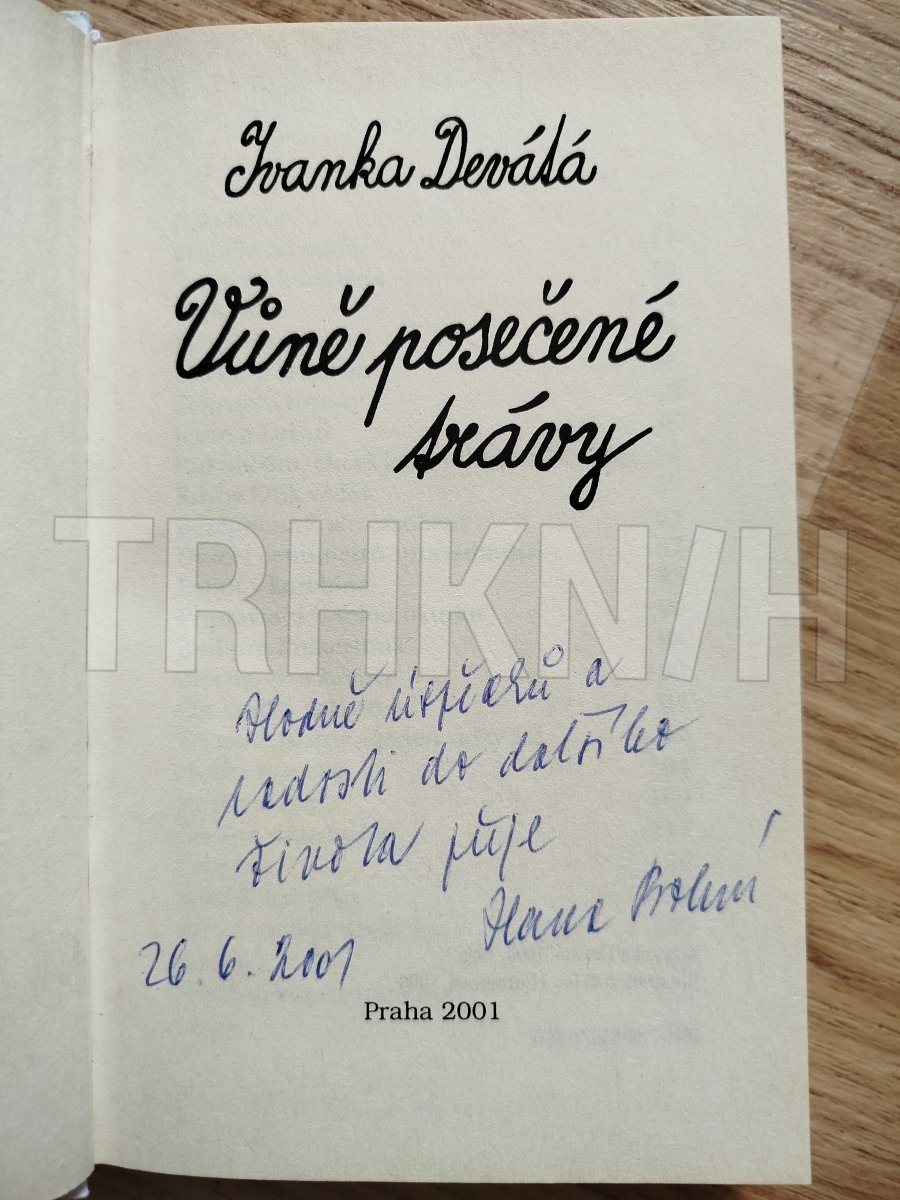 Ivanka Devátá
Vůně posečené
trávy
TRHKNIH
Hodně úspěchů a
radosti do dalšího
života přeje
Hana
26.6.2001
Praha 2001